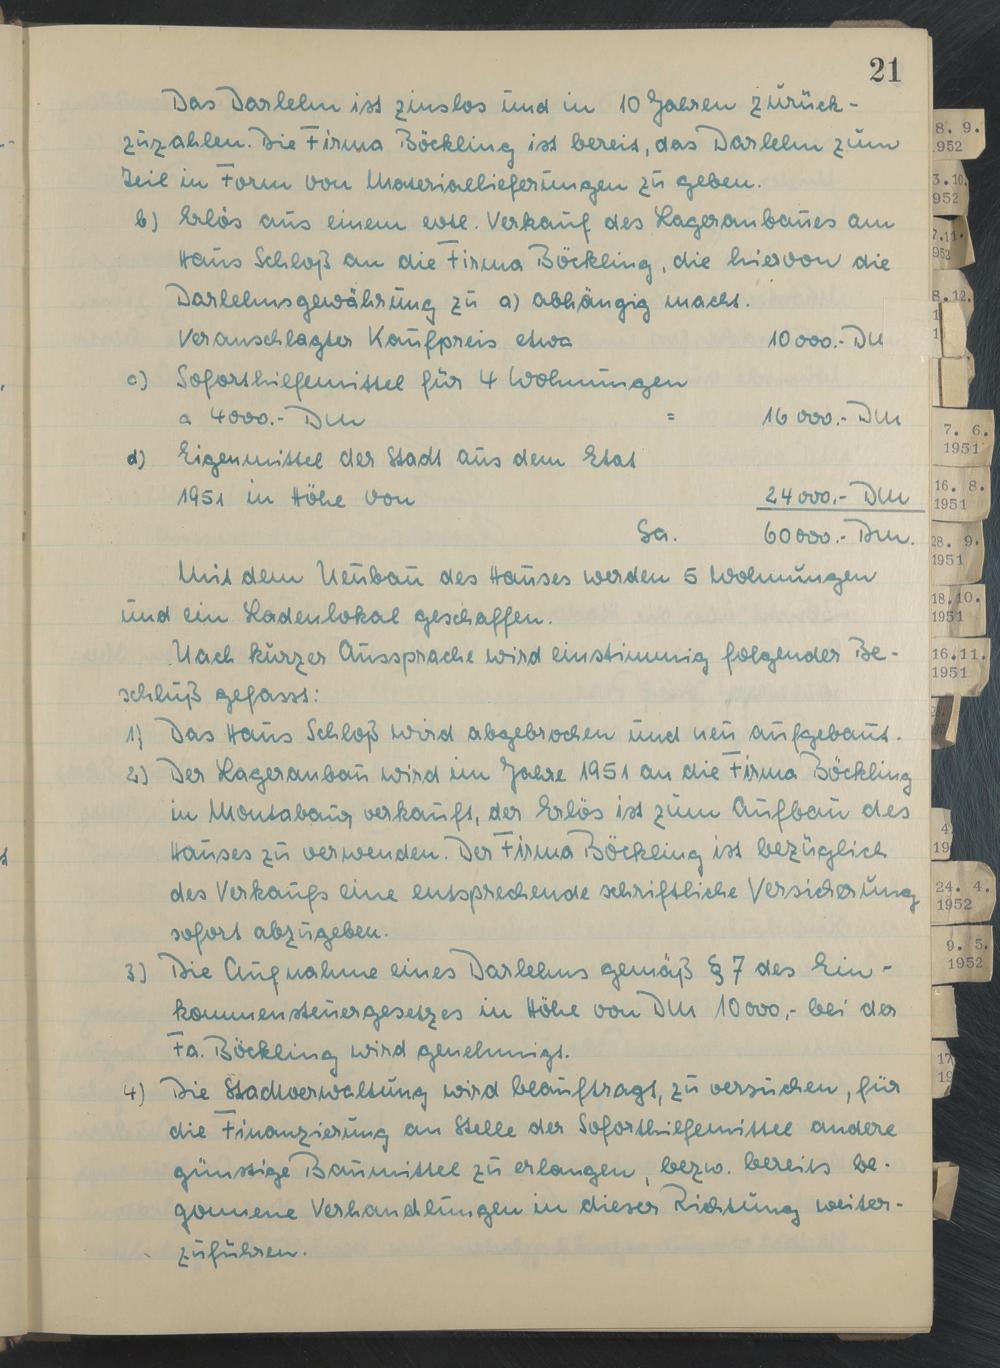 21
Das Darlehn ist zinslos und in 10 Jahren zurück-
zuzahlen. Die Firma Böckling ist bereit, das Darlehn zum
Teil in Form von Materiallieferungen zu geben.
b) Erlös aus einem evtl. Verkauf des Lageranbaues am
Haus Schloß an die Firma Böckling, die hiervon die
Darlehnsgewährung zu a) abhängig macht.
Veranschlagter Kaufpreis etwa 10000.- DM
c) Soforthilfemittel für 4 Wohnungen
a 4000.- DM = 16000.- DM
d) Eigenmittel der Stadt aus dem Etat
1951 in Höhe von 24000.- DM
Sa. 60000.- DM.
Mit dem Neubau des Hauses werden 5 Wohnungen
und ein Ladenlokal geschaffen.
Nach kurzer Aussprache wird einstimmig folgender Be-
schluß gefasst:
1) Das Haus Schloß wird abgebrochen und neu aufgebaut.
2) Der Lageranbau wird im Jahre 1951 an die Firma Böckling
in Montabaur verkauft, der Erlös ist zum Aufbau des
Hauses zu verwenden. Der Firma Böckling ist bezüglich
des Verkaufs eine entsprechende schriftliche Versicherung
sofort abzugeben.
3) Die Aufnahme eines Darlehns gemäß § 7 des Ein-
kommensteuergesetzes in Höhe von DM 10000,- bei der
Fa. Böckling wird genehmigt.
4) Die Stadtverwaltung wird beauftragt, zu versuchen, für
die Finanzierung an Stelle der Soforthilfemittel andere
günstige Baumittel zu erlangen, bezw. bereits be-
gonnene Verhandlungen in dieser Richtung weiter-
zuführen.
8. 9.
952
3.10.
952
7.11.
952
8.12.
7. 6.
1951
16. 8.
1951
28. 9.
1951
18.10.
1951
16.11.
1951
4
19
24. 4.
1952
9. 5.
1952
17
19